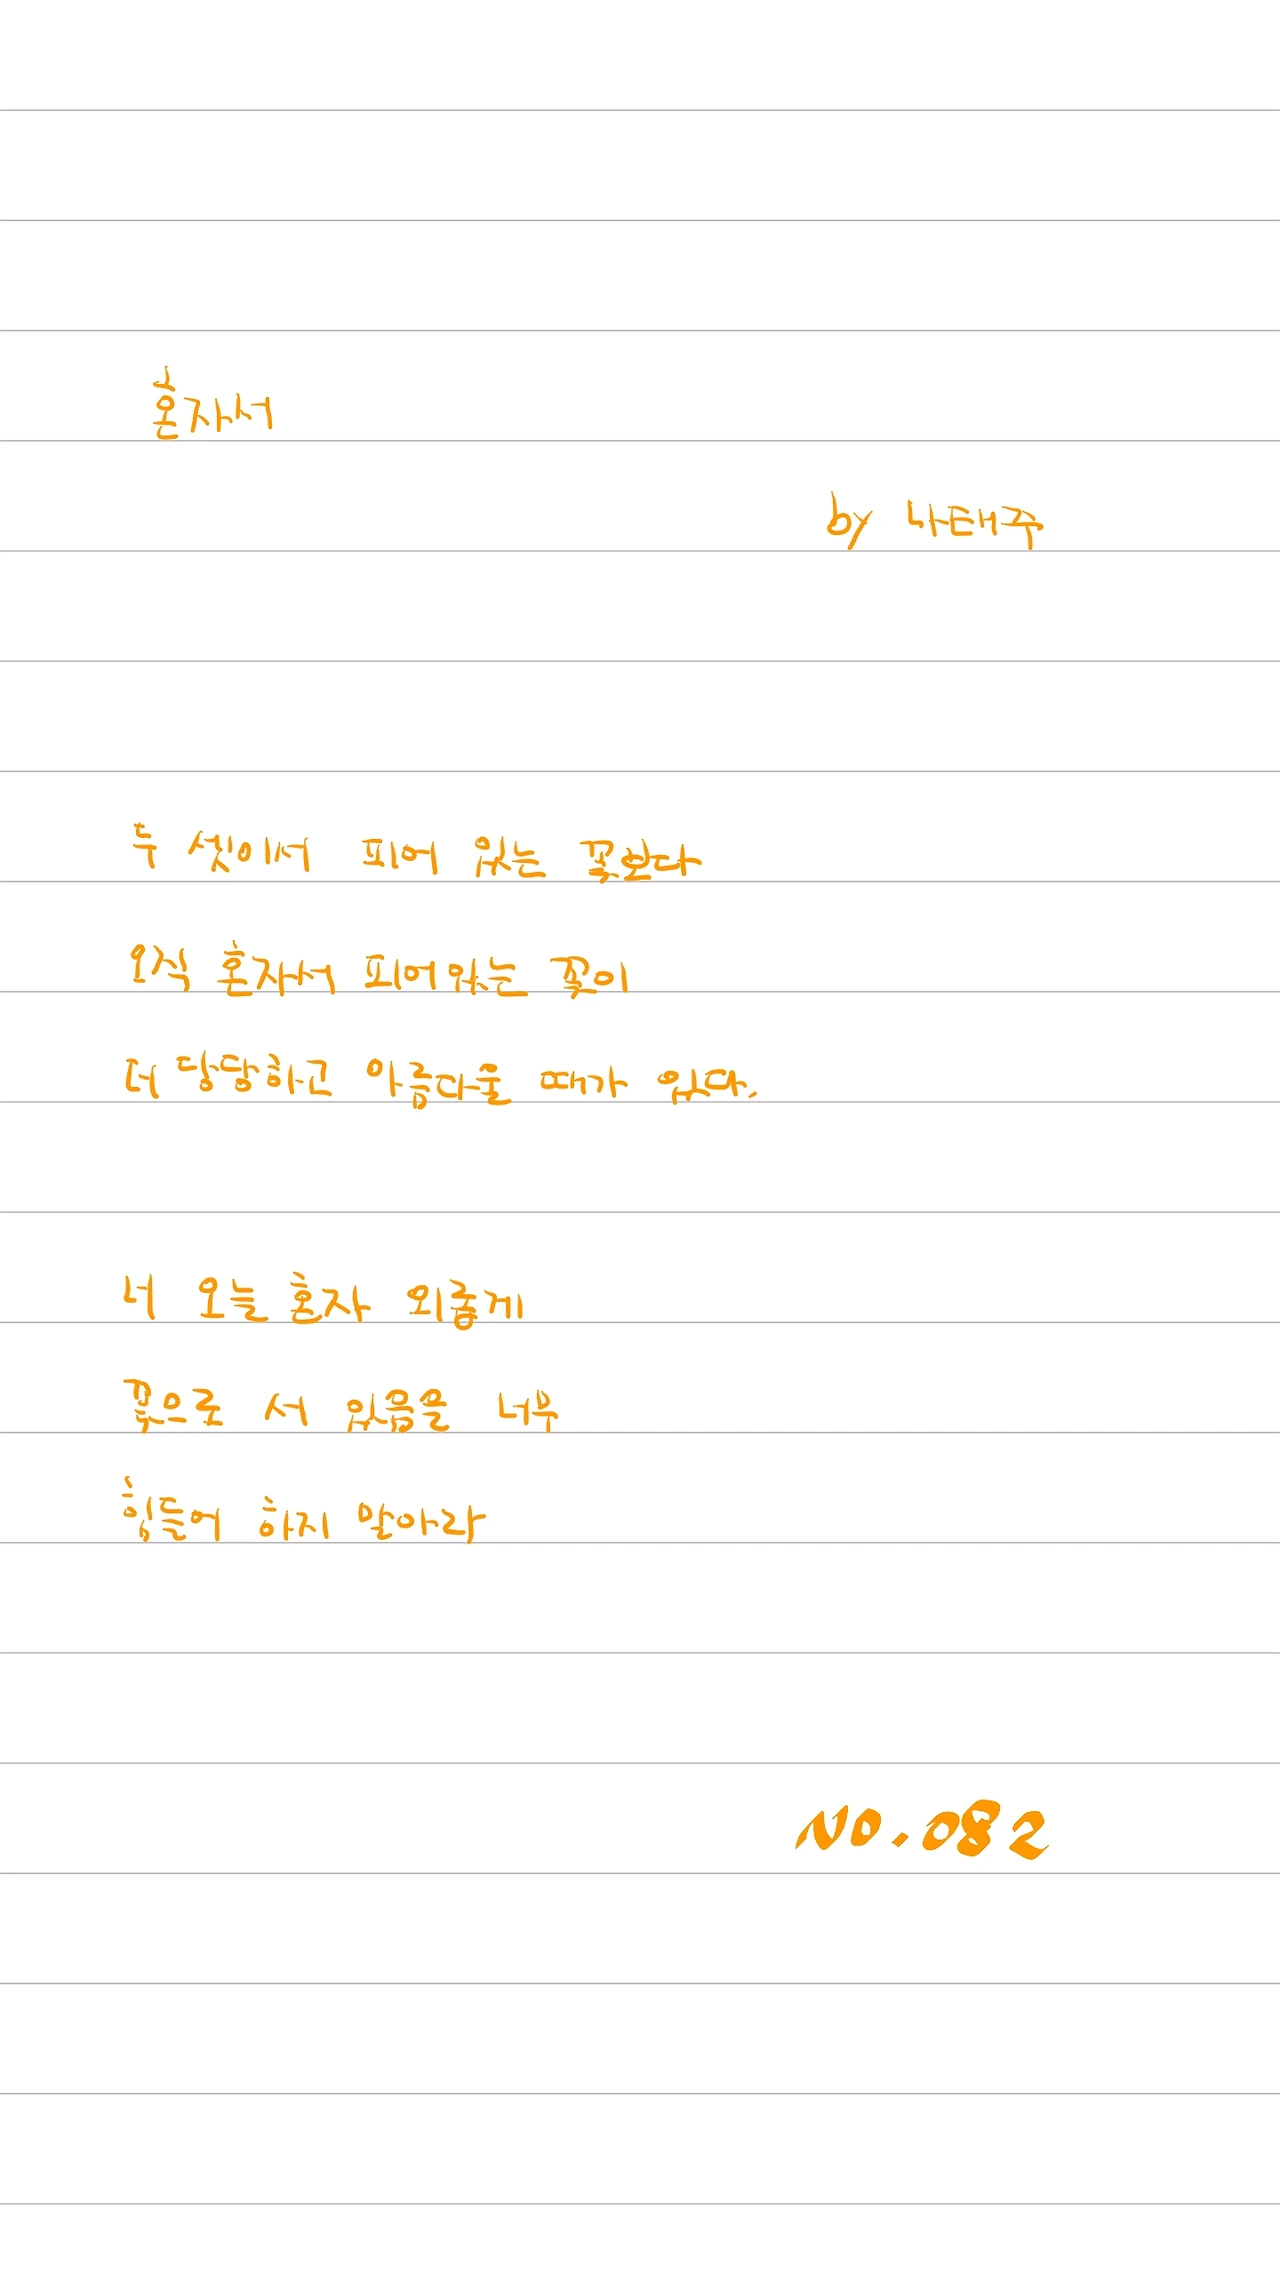 혼자서
by 나태주
두 셋이서 피어 있는 꽃보다
오직 혼자서 피어있는 꽃이
더 당당하고 아름다울 때가 있다.
너 오늘 혼자 외롭게
꽃으로 서 있음을 너무
힘들어 하지 말아라
NO.082